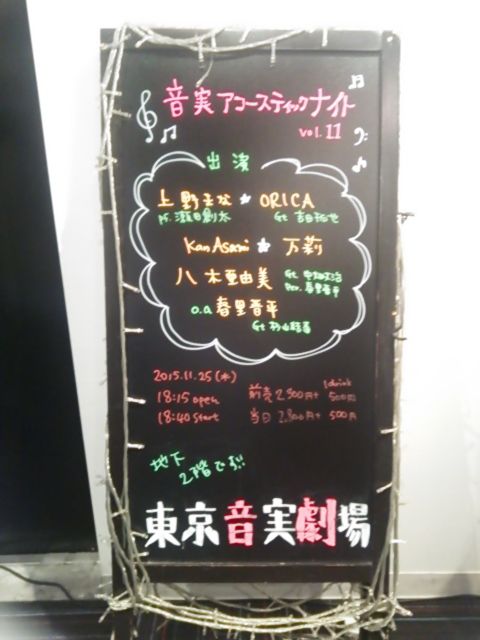 音実アコースティックナイト
vol.11
出演
上野まな ★ ORICA
pf. 瀬田創太 Gt
Kan Asami ★ 万莉
八木亜由美 Gt
Per. 春里晋平
o.a 春里晋平
Gt 杉山
2015.11.25(水)
18:15 open
18:40 start
1drink
前売 2,300円+ 500円
当日 2,800円+ 500円
地下
2階です!!
東京音実劇場